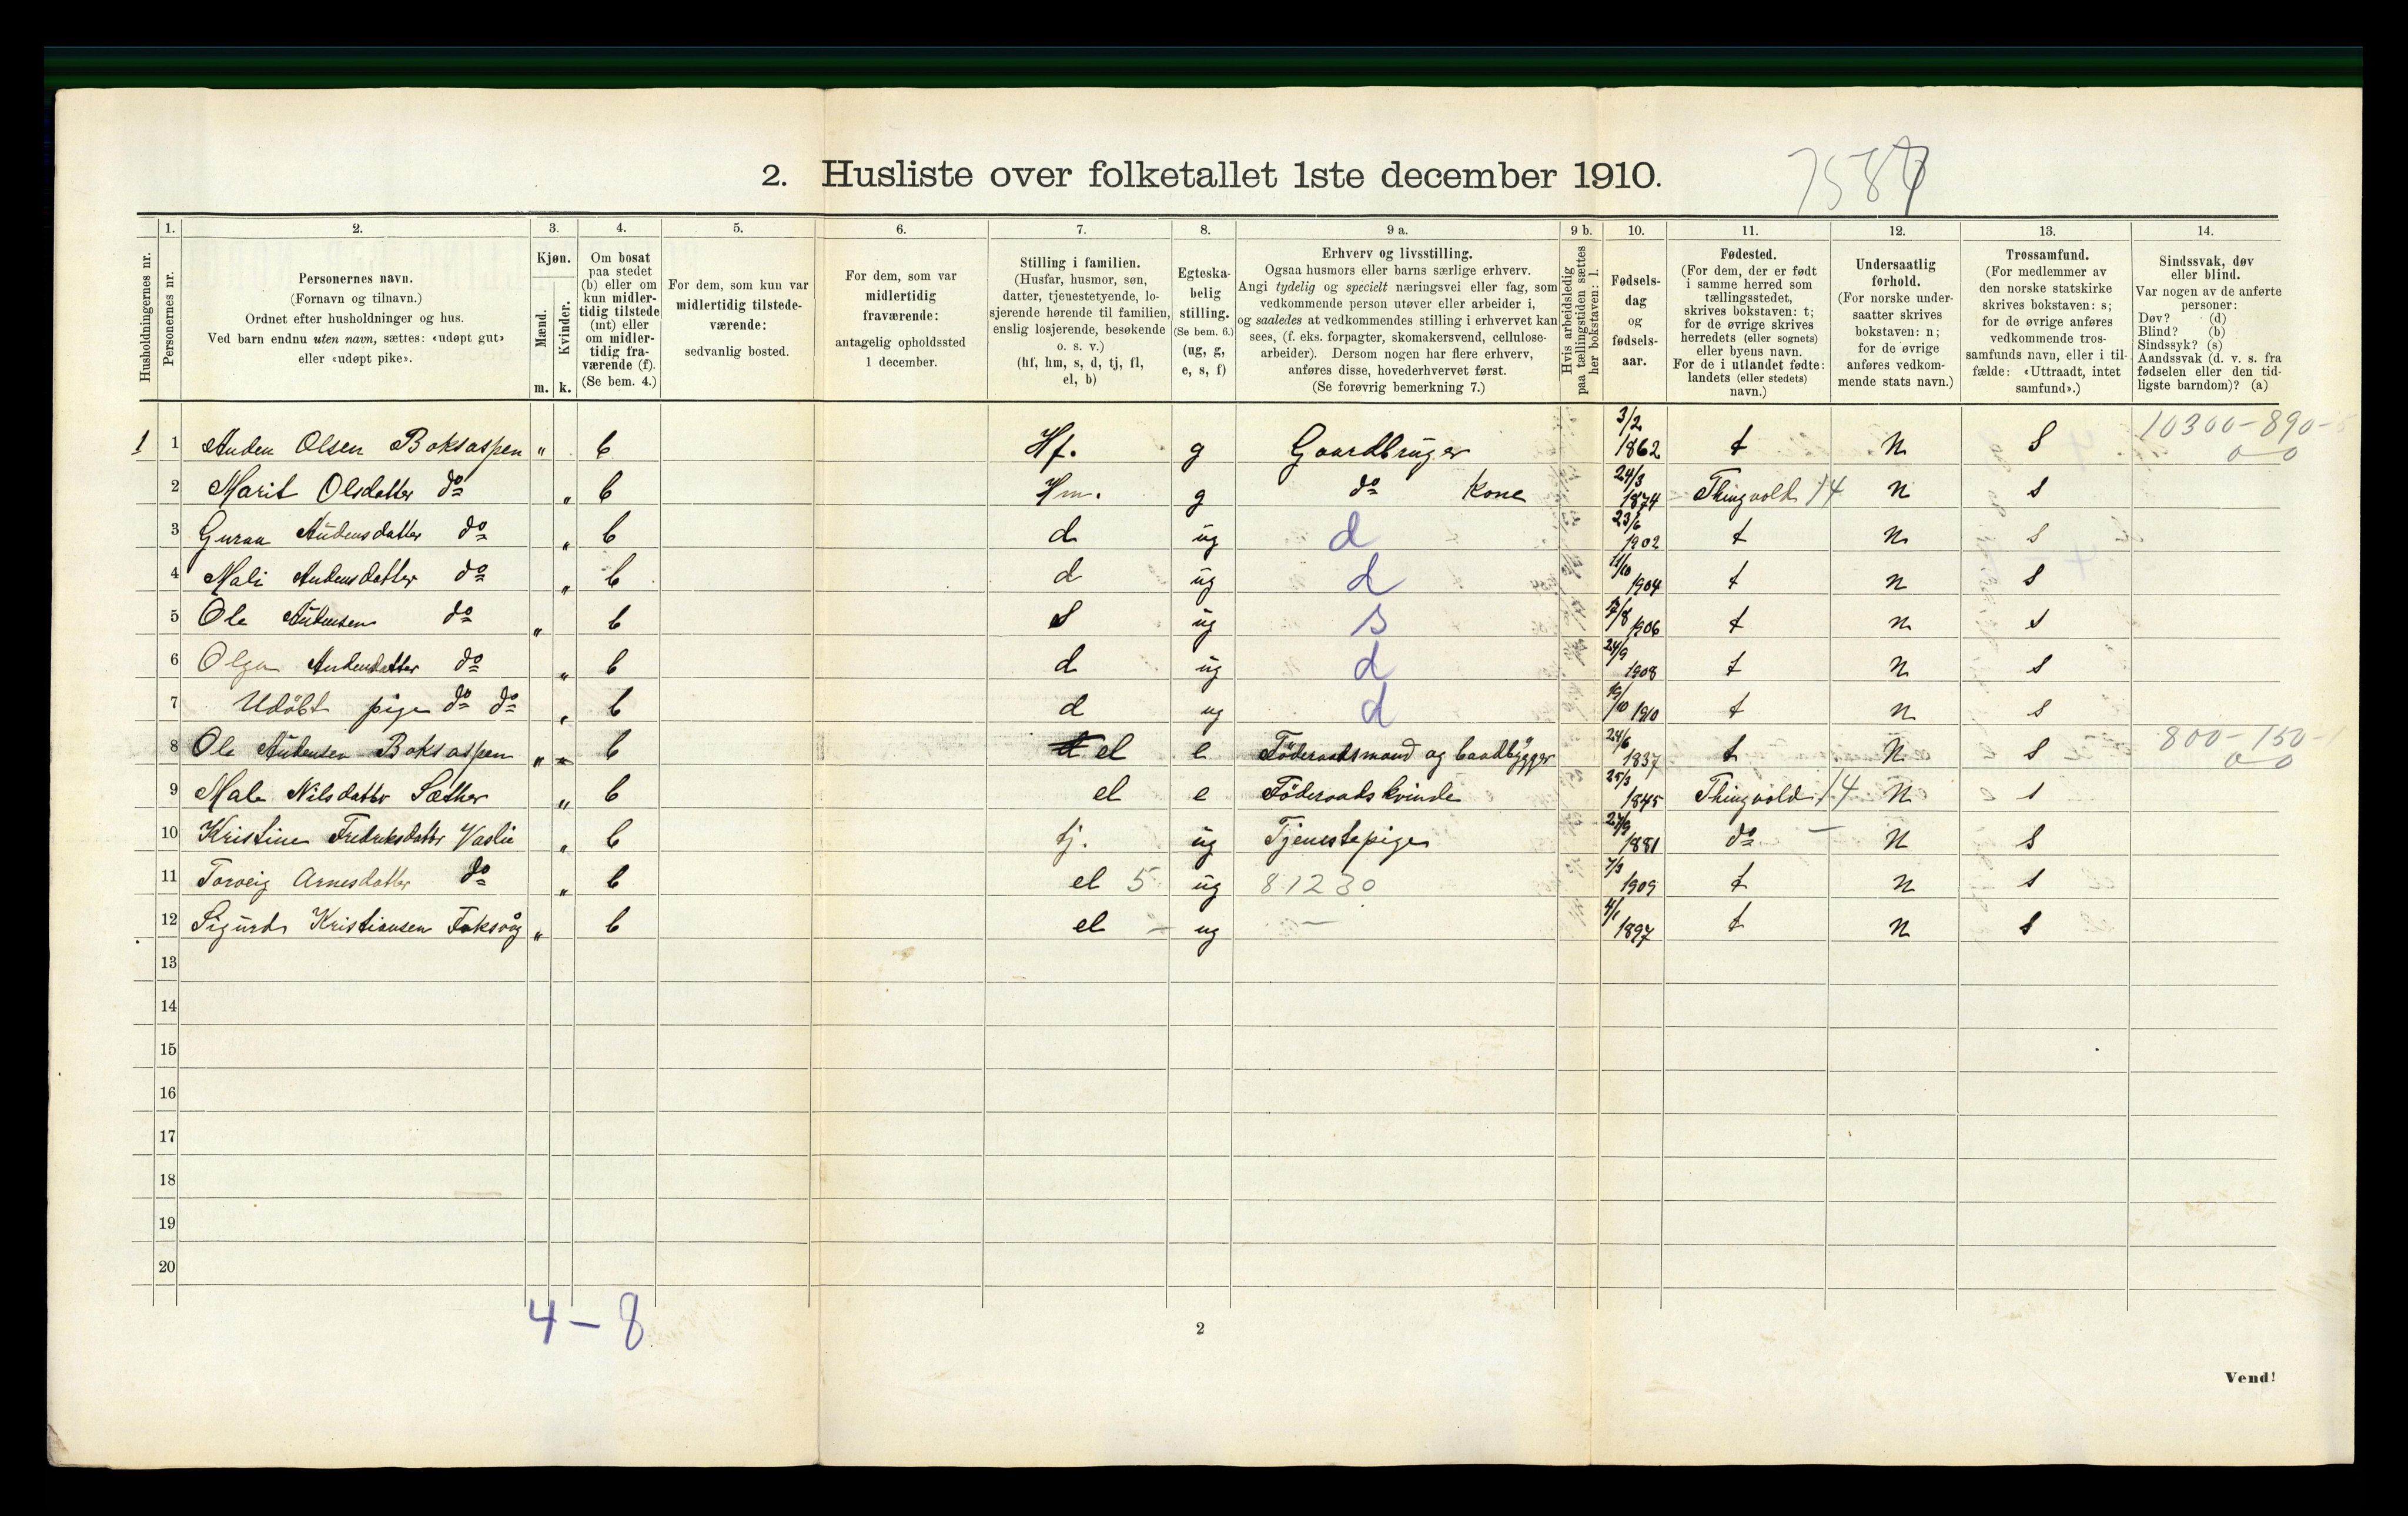 2. Husliste over folketallet 1ste december 1910.
Husholdningernes nr.
1. Personernes nr.
2. Personernes navn.
(Fornavn og tilnavn.)
Ordnet efter husholdninger og hus.
Ved barn endnu uten navn, sættes: «udøpt gut»
eller «udøpt pike».
3. Kjøn.
Mænd. m.
Kvinder. k.
4. Om bosat
paa stedet
(b) eller om
kun midler-
tidig tilstede
(mt) eller
om midler-
tidig fra-
værende (f).
(Se bem. 4.)
5. For dem, som kun var
midlertidig tilstede-
værende:
sedvanlig bosted.
6. For dem, som var
midlertidig
fraværende:
antagelig opholdssted
1 december.
7. Stilling i familien.
(Husfar, husmor, søn,
datter, tjenestetyende, lo-
sjerende hørende til familien,
enslig losjerende, besøkende
o. s. v.)
(hf, hm, s, d, tj, fl,
el, b)
8. Egteska-
belig
stilling.
(Se bem. 6.)
(ug, g,
e, s, f)
9 a. Erhverv og livsstilling.
Ogsaa husmors eller barns særlige erhverv.
Angi tydelig og specielt næringsvei eller fag, som
vedkommende person utøver eller arbeider i,
og saaledes at vedkommendes stilling i erhvervet kan
sees, (f. eks. forpagter, skomakersvend, cellulose-
arbeider). Dersom nogen har flere erhverv,
anføres disse, hovederhvervet først.
(Se forøvrig bemerkning 7.)
9 b. Hvis arbeidsledig
paa tællingstiden sættes
her bokstaven: l.
10. Fødsels-
dag
og
fødsels-
aar.
11. Fødested.
(For dem, der er født
i samme herred som
tællingsstedet,
skrives bokstaven: t;
for de øvrige skrives
herredets (eller sognets)
eller byens navn.
For de i utlandet fødte:
landets (eller stedets)
navn.)
12. Undersaatlig
forhold.
(For norske under-
saatter skrives
bokstaven: n;
for de øvrige
anføres vedkom-
mende stats navn.)
13. Trossamfund.
(For medlemmer av
den norske statskirke
skrives bokstaven: s;
for de øvrige anføres
vedkommende tros-
samfunds navn, eller i til-
fælde: «Uttraadt, intet
samfund».)
14. Sindssvak, døv
eller blind.
Var nogen av de anførte
personer:
Døv? (d)
Blind? (b)
Sindssyk? (s)
Aandssvak (d. v. s. fra
fødselen eller den tid-
ligste barndom)? (a)
1 1 Auden Olsen Boksaspen " b Hf. g Gaardbruger 3/2 1862 t N S 10300-890- 0-0
2 Marit Olsdatter do " b Hm. g do Kone 24/3 1874 Thingvold 14 N S
3 Guraa Audensdatter do " b d ug d 23/6 1902 t N S
4 Mali Audensdatter do " b d ug d 11/10 1904 t N S
5 Ole Audensen do " b S ug s 17/8 1906 t N S
6 Olga Audensdatter do " b d ug d 24/9 1908 t N S
7 Udöbt pige do do " b d ug d 19/10 1910 t N S
8 Ole Audensen Boksaspen " b el e Föderaadsmand og baadbygger 24/6 1837 t N S 800-150- 0-0
9 Male Nilsdatter Sæther " b el e Föderaadskvinde 25/3 1845 Thingvold 14 N S
10 Kristine Fredriksdatter Vaslie " b tj. ug Tjenestepige 27/9 1881 do N S
11 Torveig Arnesdatter do " b el 5 ug 81230 7/3 1909 t N S
12 Sigurd Kristiansen Foksvåg " b el - ug - 4/1 1897 t N S
13
14
15
16
17
18
19
20
4 - 8
2
Vend!